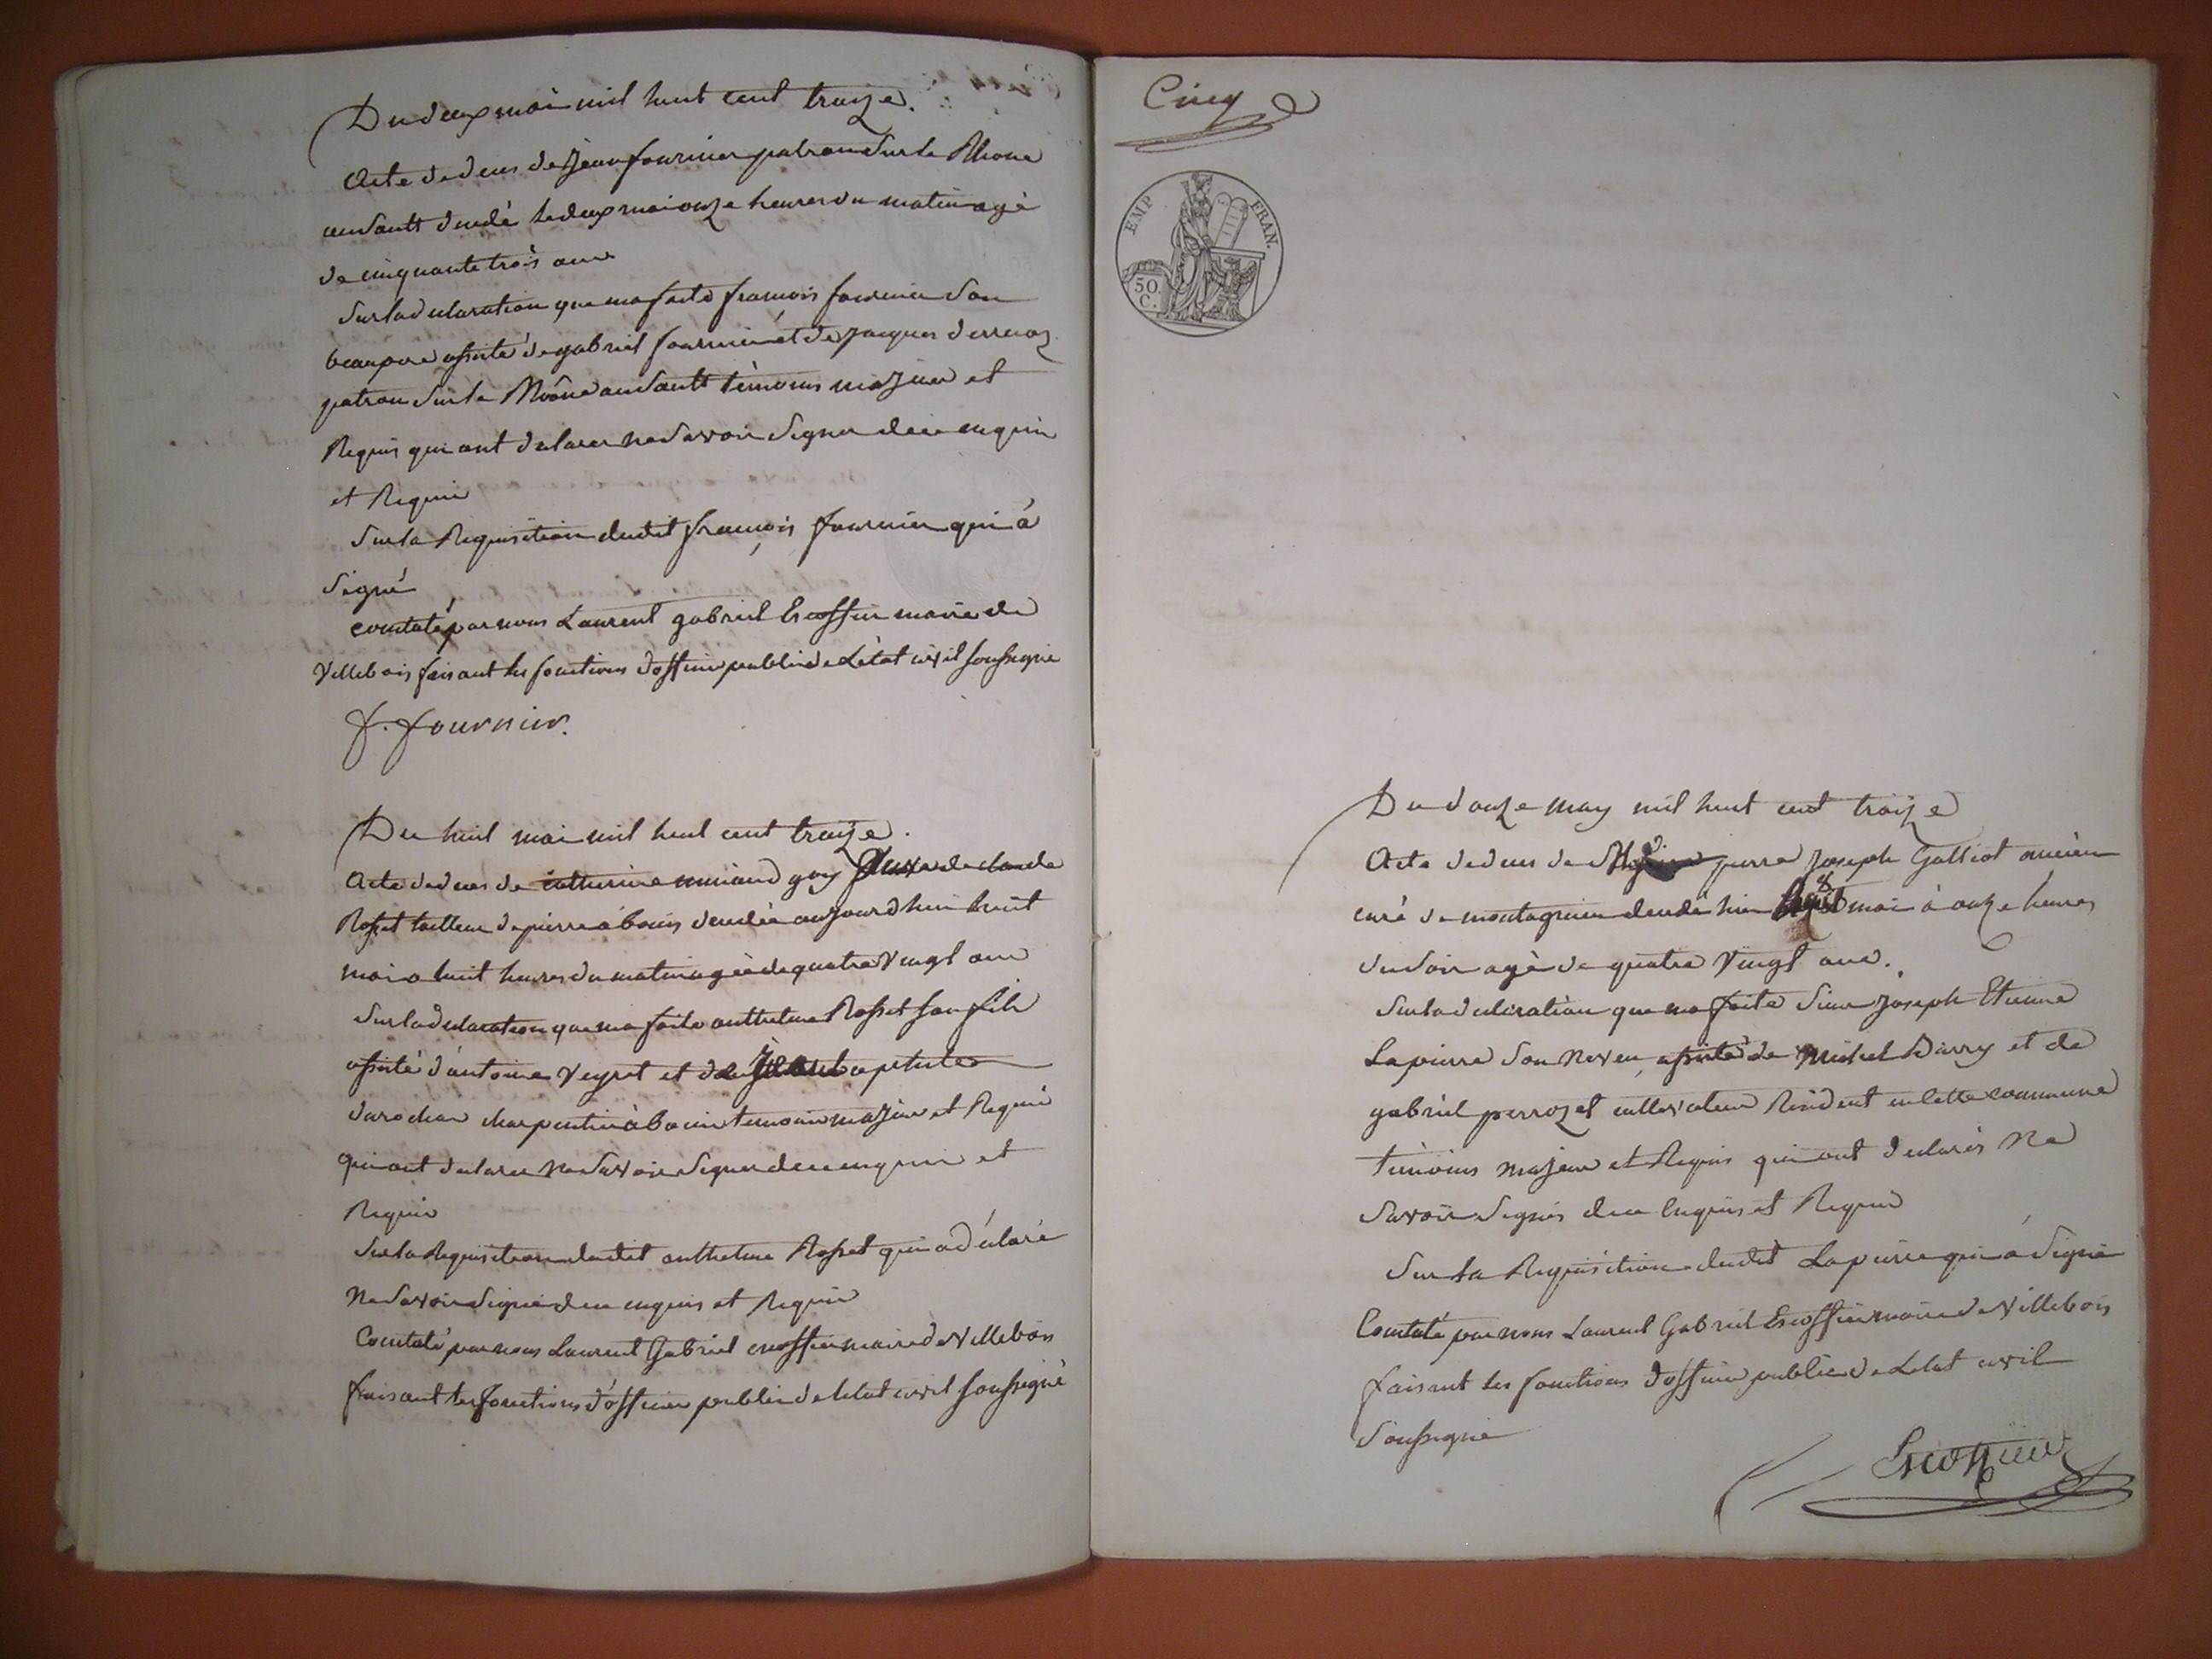 Du deux mai mil huit cent traize.
Acte de deces de jean fournier patron sur le Rhone
au Sault deucdé le deux mai onze heures du matin agé
de cinquante trois ans
Sur la declaration que ma faite francois fournier son
beau pere assisté de gabriel fournier et de jacques
patron sur le Rhône au Sault témoins majeur et
Requis qui ont declarer ne Savoir Signer de ce enquis
et Requis
Sur la Requisition dudit francois fournier qui à
Signé
constaté par nous Laurent gabriel Escoffier maire de
Villebois faisant les fonctions d'officier public de L'état civil soussigné
f. fournier.
Du huit mai mil huit cent traize.
Acte de deces de catherine guy Veuve de claude
Rosset tailleur de pierre à bouis deucdée aujourdhui huit
mai a huit heures du matin agée de quatre Vingt ans
Sur la declaration que ma faite anthelme Rosset son fils
assisté d'antoine Veyret et de jean baptiste
charpentier à bouis temoins majeur et Requis
qui ont declarer ne Savoir Signer de ce enquis et
Requis
Sur la Requisition dudit anthelme Rosset qui a déclaré
Ne Savoir Signer de ce enquis et Requis
Constaté par nous Laurent Gabriel escoffier maire de Villebois
faisant les fonctions d'officier public de letat civil soussigné
Cinq
EMP FRAN.
50 C.
Du douze may mil huit cent traize
Acte de deces de pierre joseph Galliot ancien
curé de montagnieu deucdé hier mai à onze heures
du Soir agé de quatre Vingt ans.
Sur la declaration que ma faite Sieur joseph Etienne
Lapierre Son Neveu, assisté de Michel Barry et de
gabriel perrozet cultivateur Resident en cette commune
témoins majeur et Requis qui ont declarés Ne
Savoir Signer de ce Enquis et Requis
Sur la Requisition dudit Lapierre qui a Signé
Constaté par nous Laurent Gabriel Escoffier maire de Villebois
faisant les fonctions d'officier public de Letat civil
Soussigné
Escoffier